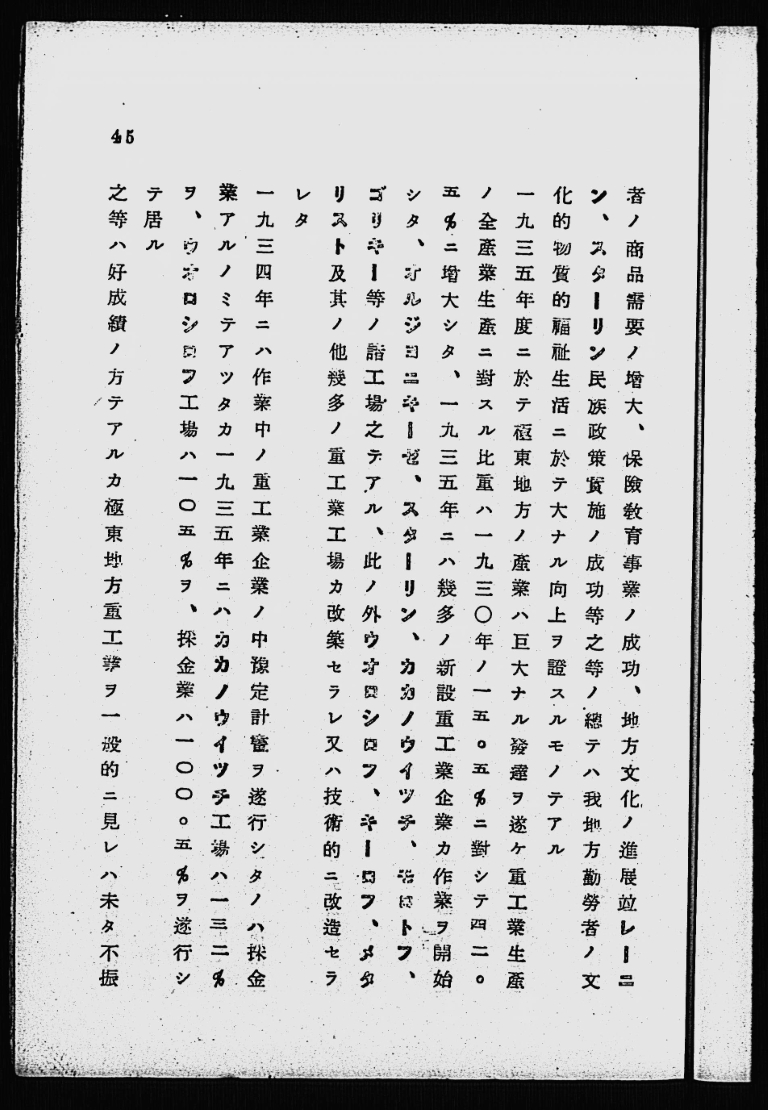 45
者ノ商品需要ノ增大、保險敎育事業ノ成功、地方文化ノ進展竝レーニ
ン、スターリン民族政策實施ノ成功等之等ノ總テハ我地方勤勞者ノ文
化的物質的福祉生活ニ於テ大ナル向上ヲ證スルモノテアル
一九三五年度ニ於テ極東地方ノ產業ハ巨大ナル發達ヲ遂ケ重工業生產
ノ全產業生產ニ對スル比重ハ一九三〇年ノ一五。五%ニ對シテ四二。
五%ニ增大シタ、一九三五年ニハ幾多ノ新設重工業企業カ作業ヲ開始
シタ、オルジヨニキーゼ、スターリン、カカノウイツチ、モロトフ、
ゴリキー等ノ諸工場之テアル、此ノ外ウオロシロフ、キーロフ、メタ
リスト及其ノ他幾多ノ重工業工場カ改築セラレ又ハ技術的ニ改造セラ
レタ
一九三四年ニハ作業中ノ重工業企業ノ中豫定計畫ヲ遂行シタノハ採金
業アルノミテアツタカ一九三五年ニハカカノウイツチ工場ハ一三二%
ヲ、ウオロシロフ工場ハ一〇五%ヲ、採金業ハ一〇〇。五%ヲ遂行シ
テ居ル
之等ハ好成績ノ方テアルカ極東地方重工業ヲ一般的ニ見レハ未タ不振